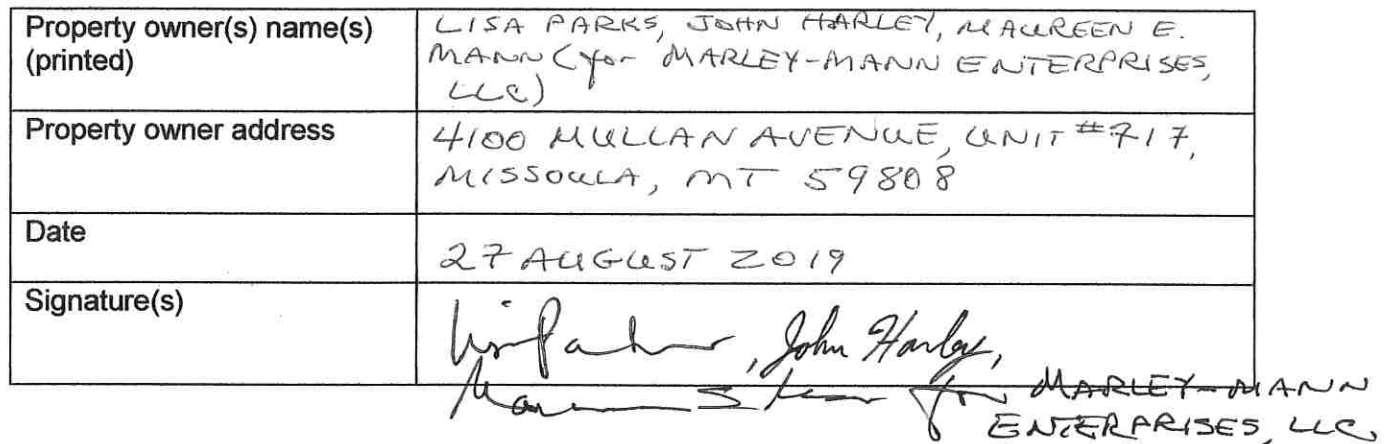 Property owner(s) name(s)
(printed)
LISA PARKS, JOHN HARLEY, MAUREEN E.
MANN (for MARLEY-MANN ENTERPRISES,
LLC)
Property owner address
4100 MULLAN AVENUE, UNIT #717,
MISSOULA, MT 59808
Date
27 AUGUST 2019
Signature(s)
Lisa Parks, John Harley,
Maureen E Mann for MARLEY-MANN
ENTERPRISES, LLC